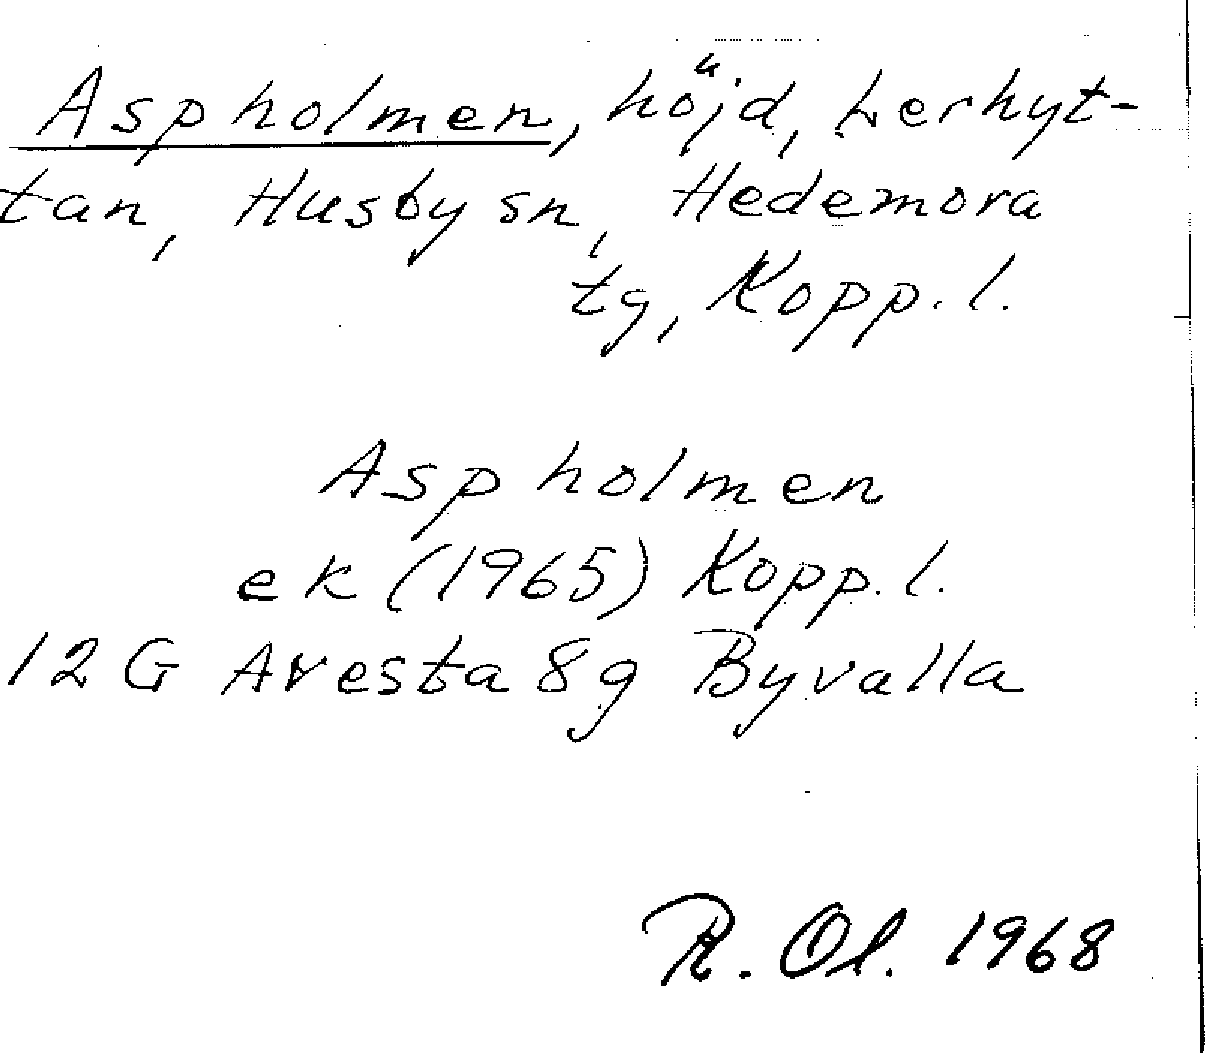 Aspholmen, höjd, Lerhyt-
tan, Husby sn, Hedemora
tg, Kopp. l.
Aspholmen
ek (1965) Kopp. l.
12 G Avesta 8g Byvalla
R. Ol. 1968